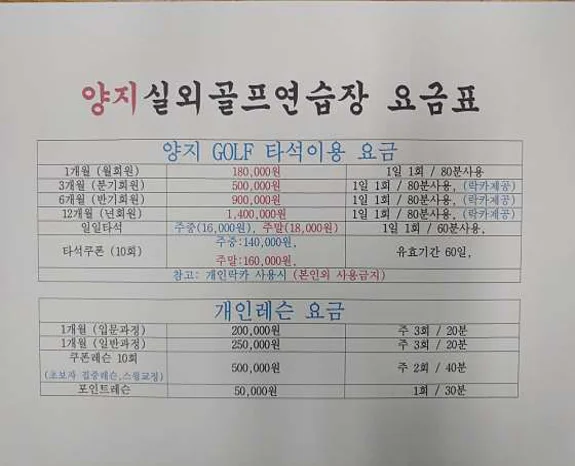 양지실외골프연습장 요금표
양지 GOLF 타석이용 요금
1개월 (월회원) 180,000원 1일 1회 / 80분사용
3개월 (분기회원) 500,000원 1일 1회 / 80분사용, (락카제공)
6개월 (반기회원) 900,000원 1일 1회 / 80분사용, (락카제공)
12개월 (년회원) 1,400,000원 1일 1회 / 80분사용, (락카제공)
일일타석 주중(16,000원), 주말(18,000원) 1일 1회 / 60분사용,
타석쿠폰 (10회) 주중:140,000원, 유효기간 60일,
주말:160,000원,
참고: 개인락카 사용시 (본인외 사용금지)
개인레슨 요금
1개월 (입문과정) 200,000원 주 3회 / 20분
1개월 (일반과정) 250,000원 주 3회 / 20분
쿠폰레슨 10회 500,000원 주 2회 / 40분
(초보자 집중레슨,스윙교정)
포인트레슨 50,000원 1회 / 30분